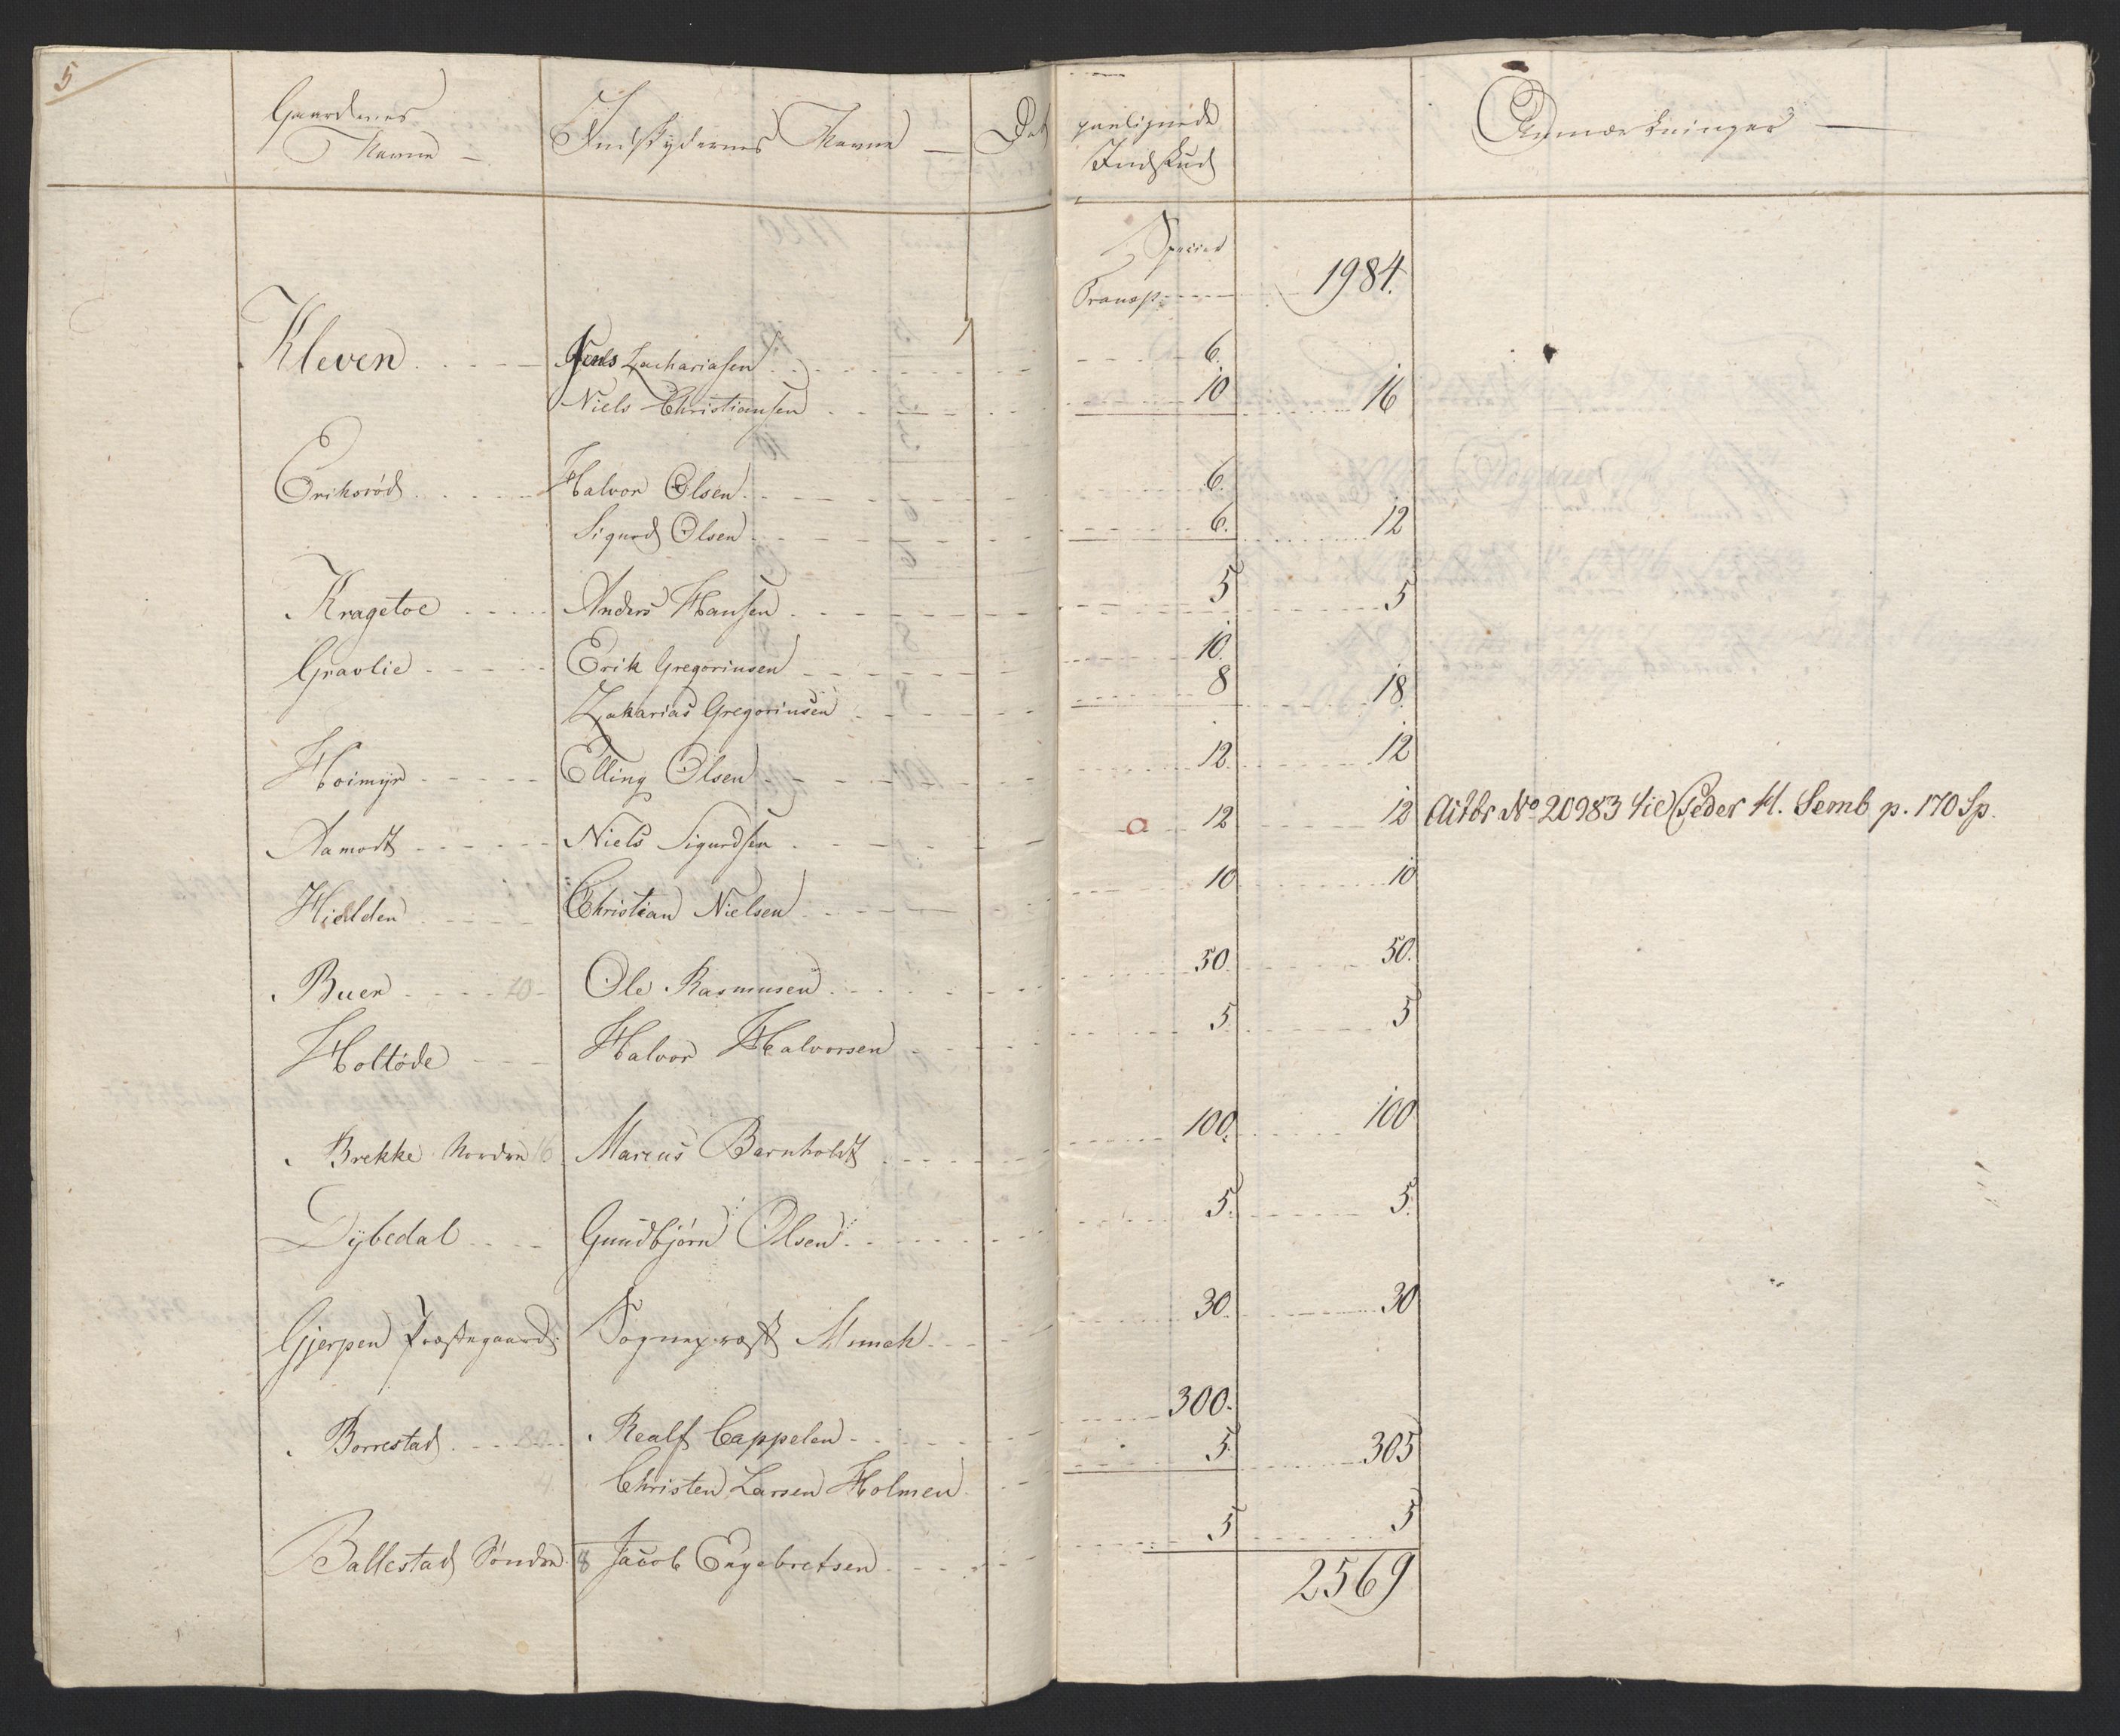 5
Gaardenes Navne — Indskydernes Navne — Det paalignede Indskud Anmærkninger —
Species
Transp. 1984.
Kleven Jens Zachariasen 6.
Niels Christiansen 10 16
Eriksrød Halvor Olsen 6.
Sigurd Olsen 6. 12
Kragetoe Anders Hansen 5 5
Gravlie Erik Gregoriusen 10.
Zakarias Gregoriusen 8 18
Hoimyr Elling Olsen 12 12
Aamodt Niels Sigurdsen 12 12 No 20983 Peder H. Semb p. 170 Sp.
Hielden Christian Nielsen 10 10
Buer 20 Ole Rasmusen 50 50.
Holtøde Halvor Halvorsen 5 5
Brekke Nordre 16 Marcus Barnholdt 100. 100
Dybedal Gundbjørn Olsen 5. 5.
Gjerpen Præstegaard Sognepræst Munch 30 30
Borrestad 80 Realf Cappelen 300.
4 Christen Larsen Holmen 5 305
Ballestad Søndre 8 Jacob Engebretsen 5 5
2569